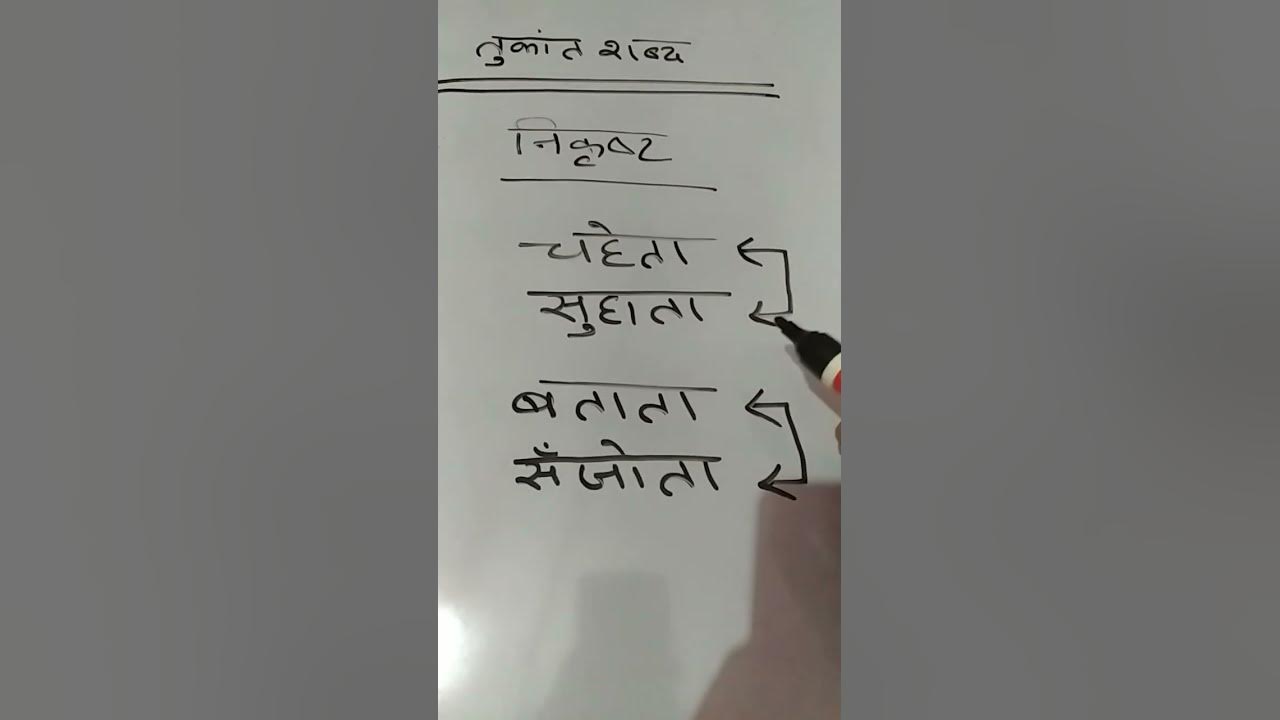 तुकांत शब्द
निकृष्ट
चहेता
सुहाता
बताता
सँजोता